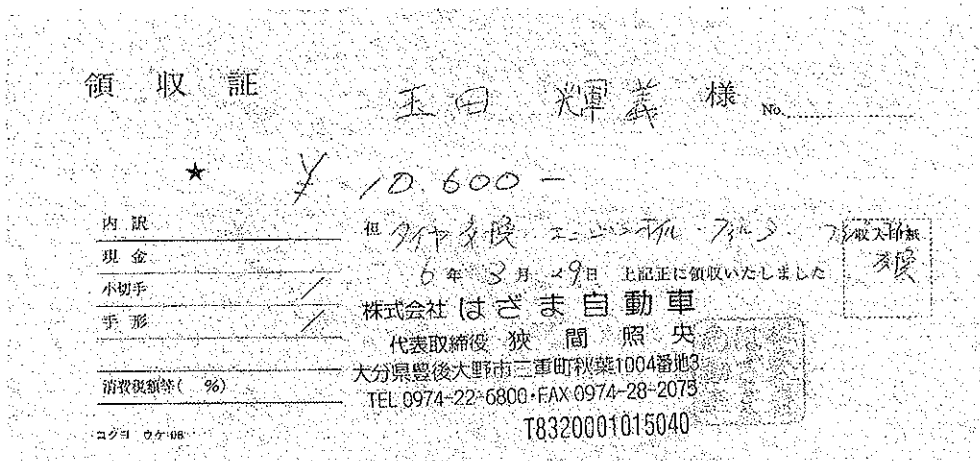 領収証
玉田 輝義 様 No.
★ ¥10.600-
内訳
現金
小切手
手形
消費税額等( %)
コクヨ ウケ-98
但 タイヤ交換 エンジンオイル・フィルター・
交換
収入印紙
6年3月29日 上記正に領収いたしました
株式会社 はざま自動車
代表取締役 狹間照央
大分県豊後大野市三重町秋葉1004番地3
TEL 0974-22-6800・FAX 0974-28-2075
T8320001015040